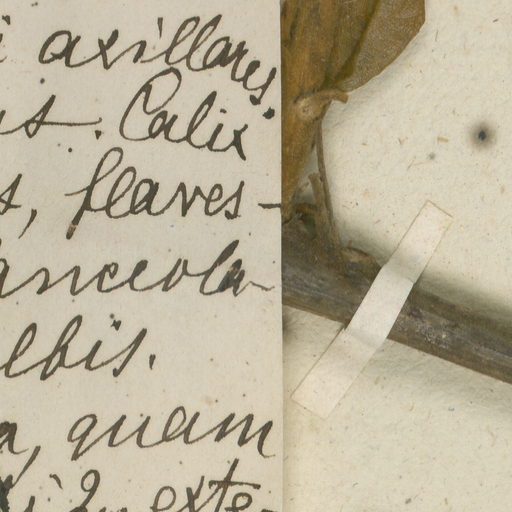 i axillares.
us. Calix
s, flaves-
anceola-
lbis.
a, quam
i 2, exte-